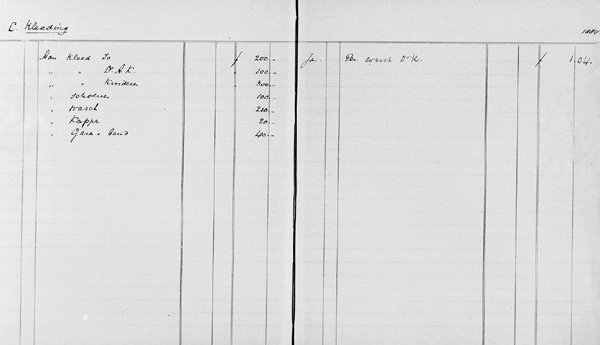 C. Kleeding
Aan Kleed Jo f 200.-
" " Dr. A. K. " 100.-
" " Kinderen " 800.-
" Schoenen 100.-
" Wasch 250.-
" Kapper 20.-
" Garen & band 40.-
Ja. Per wasch Dr K. f 1.04.